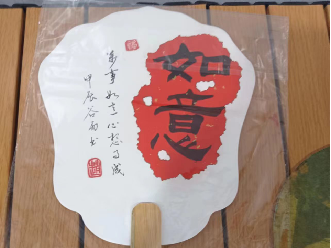 如意
万事如意心想事成
甲辰谷雨书